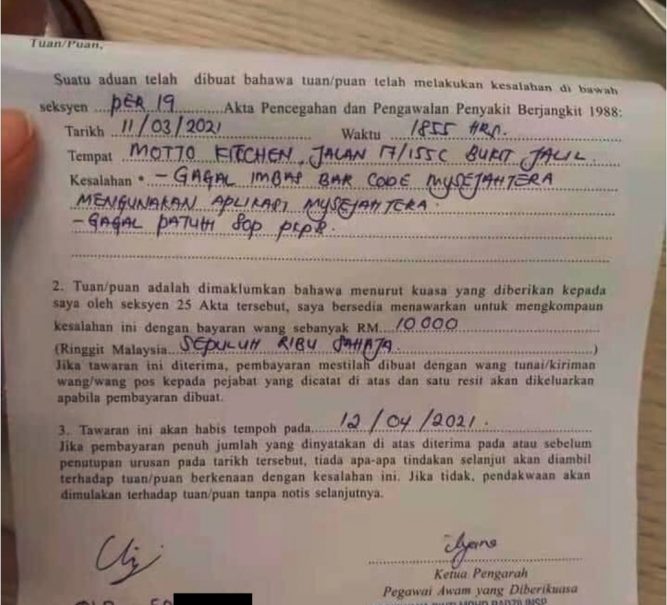 Tuan/Puan,
Suatu aduan telah dibuat bahawa tuan/puan telah melakukan kesalahan di bawah
seksyen ...PER 19...Akta Pencegahan dan Pengawalan Penyakit Berjangkit 1988:
Tarikh 11/03/2021 Waktu 1855 HRS.
Tempat MOTTO KITCHEN, JALAN 17/155C BUKIT JALIL.
Kesalahan * - GAGAL IMBAS BAR CODE MYSEJAHTERA
MENGUNAKAN APLIKASI MYSEJAHTERA.
- GAGAL PATUH SOP PKPB.
2. Tuan/puan adalah dimaklumkan bahawa menurut kuasa yang diberikan kepada
saya oleh seksyen 25 Akta tersebut, saya bersedia menawarkan untuk mengkompaun
kesalahan ini dengan bayaran wang sebanyak RM...10 000
(Ringgit Malaysia...SEPULUH RIBU SAHAJA.)
Jika tawaran ini diterima, pembayaran mestilah dibuat dengan wang tunai/kiriman
wang/wang pos kepada pejabat yang dicatat di atas dan satu resit akan dikeluarkan
apabila pembayaran dibuat.
3. Tawaran ini akan habis tempoh pada...12/04/2021.
Jika pembayaran penuh jumlah yang dinyatakan di atas diterima pada atau sebelum
penutupan urusan pada tarikh tersebut, tiada apa-apa tindakan selanjut akan diambil
terhadap tuan/puan berkenaan dengan kesalahan ini. Jika tidak, pendakwaan akan
dimulakan terhadap tuan/puan tanpa notis selanjutnya.
Ketua Pengarah
Pegawai Awam yang Diberikuasa